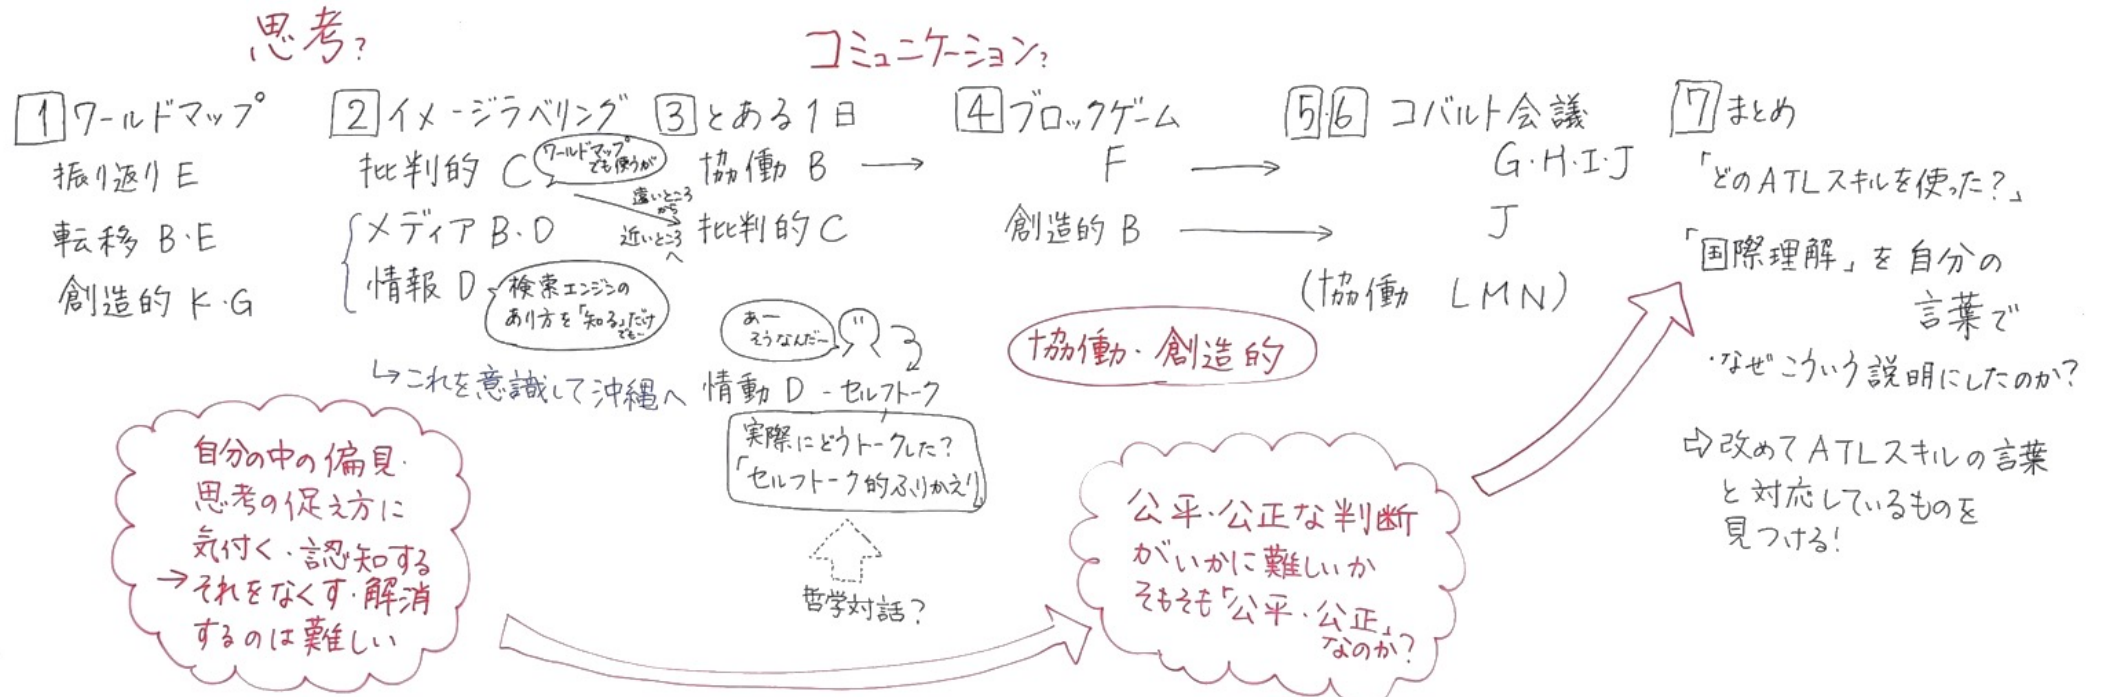 思考?
コミュニケーション?
1 ワールドマップ
振り返り E
転移 B・E
創造的 K・G
2 イメージラベリング
批判的 C
ワールドマップ
でも使うが
メディア B・D
情報 D
検索エンジンの
あり方を「知る」だけ
でも〜
↳これを意識して沖縄へ
遠いところ
から
近いところ
へ
3 とある1日
協働 B →
批判的 C
あー
そうなんだ〜
情動 D - セルフトーク
実際にどうトークした?
「セルフトーク的ふりかえり」
哲学対話?
4 ブロックゲーム
F →
創造的 B →
協働・創造的
5・6 コバルト会議
G・H・I・J
J
(協働 LMN)
7 まとめ
「どのATLスキルを使った?」
「国際理解」を自分の
言葉で
・なぜこういう説明にしたのか?
⇨改めてATLスキルの言葉
と対応しているものを
見つける!
自分の中の偏見・
思考の促え方に
気付く・認知する
→それをなくす・解消
するのは難しい
公平・公正な判断
がいかに難しいか
そもそも「公平・公正」
なのか?